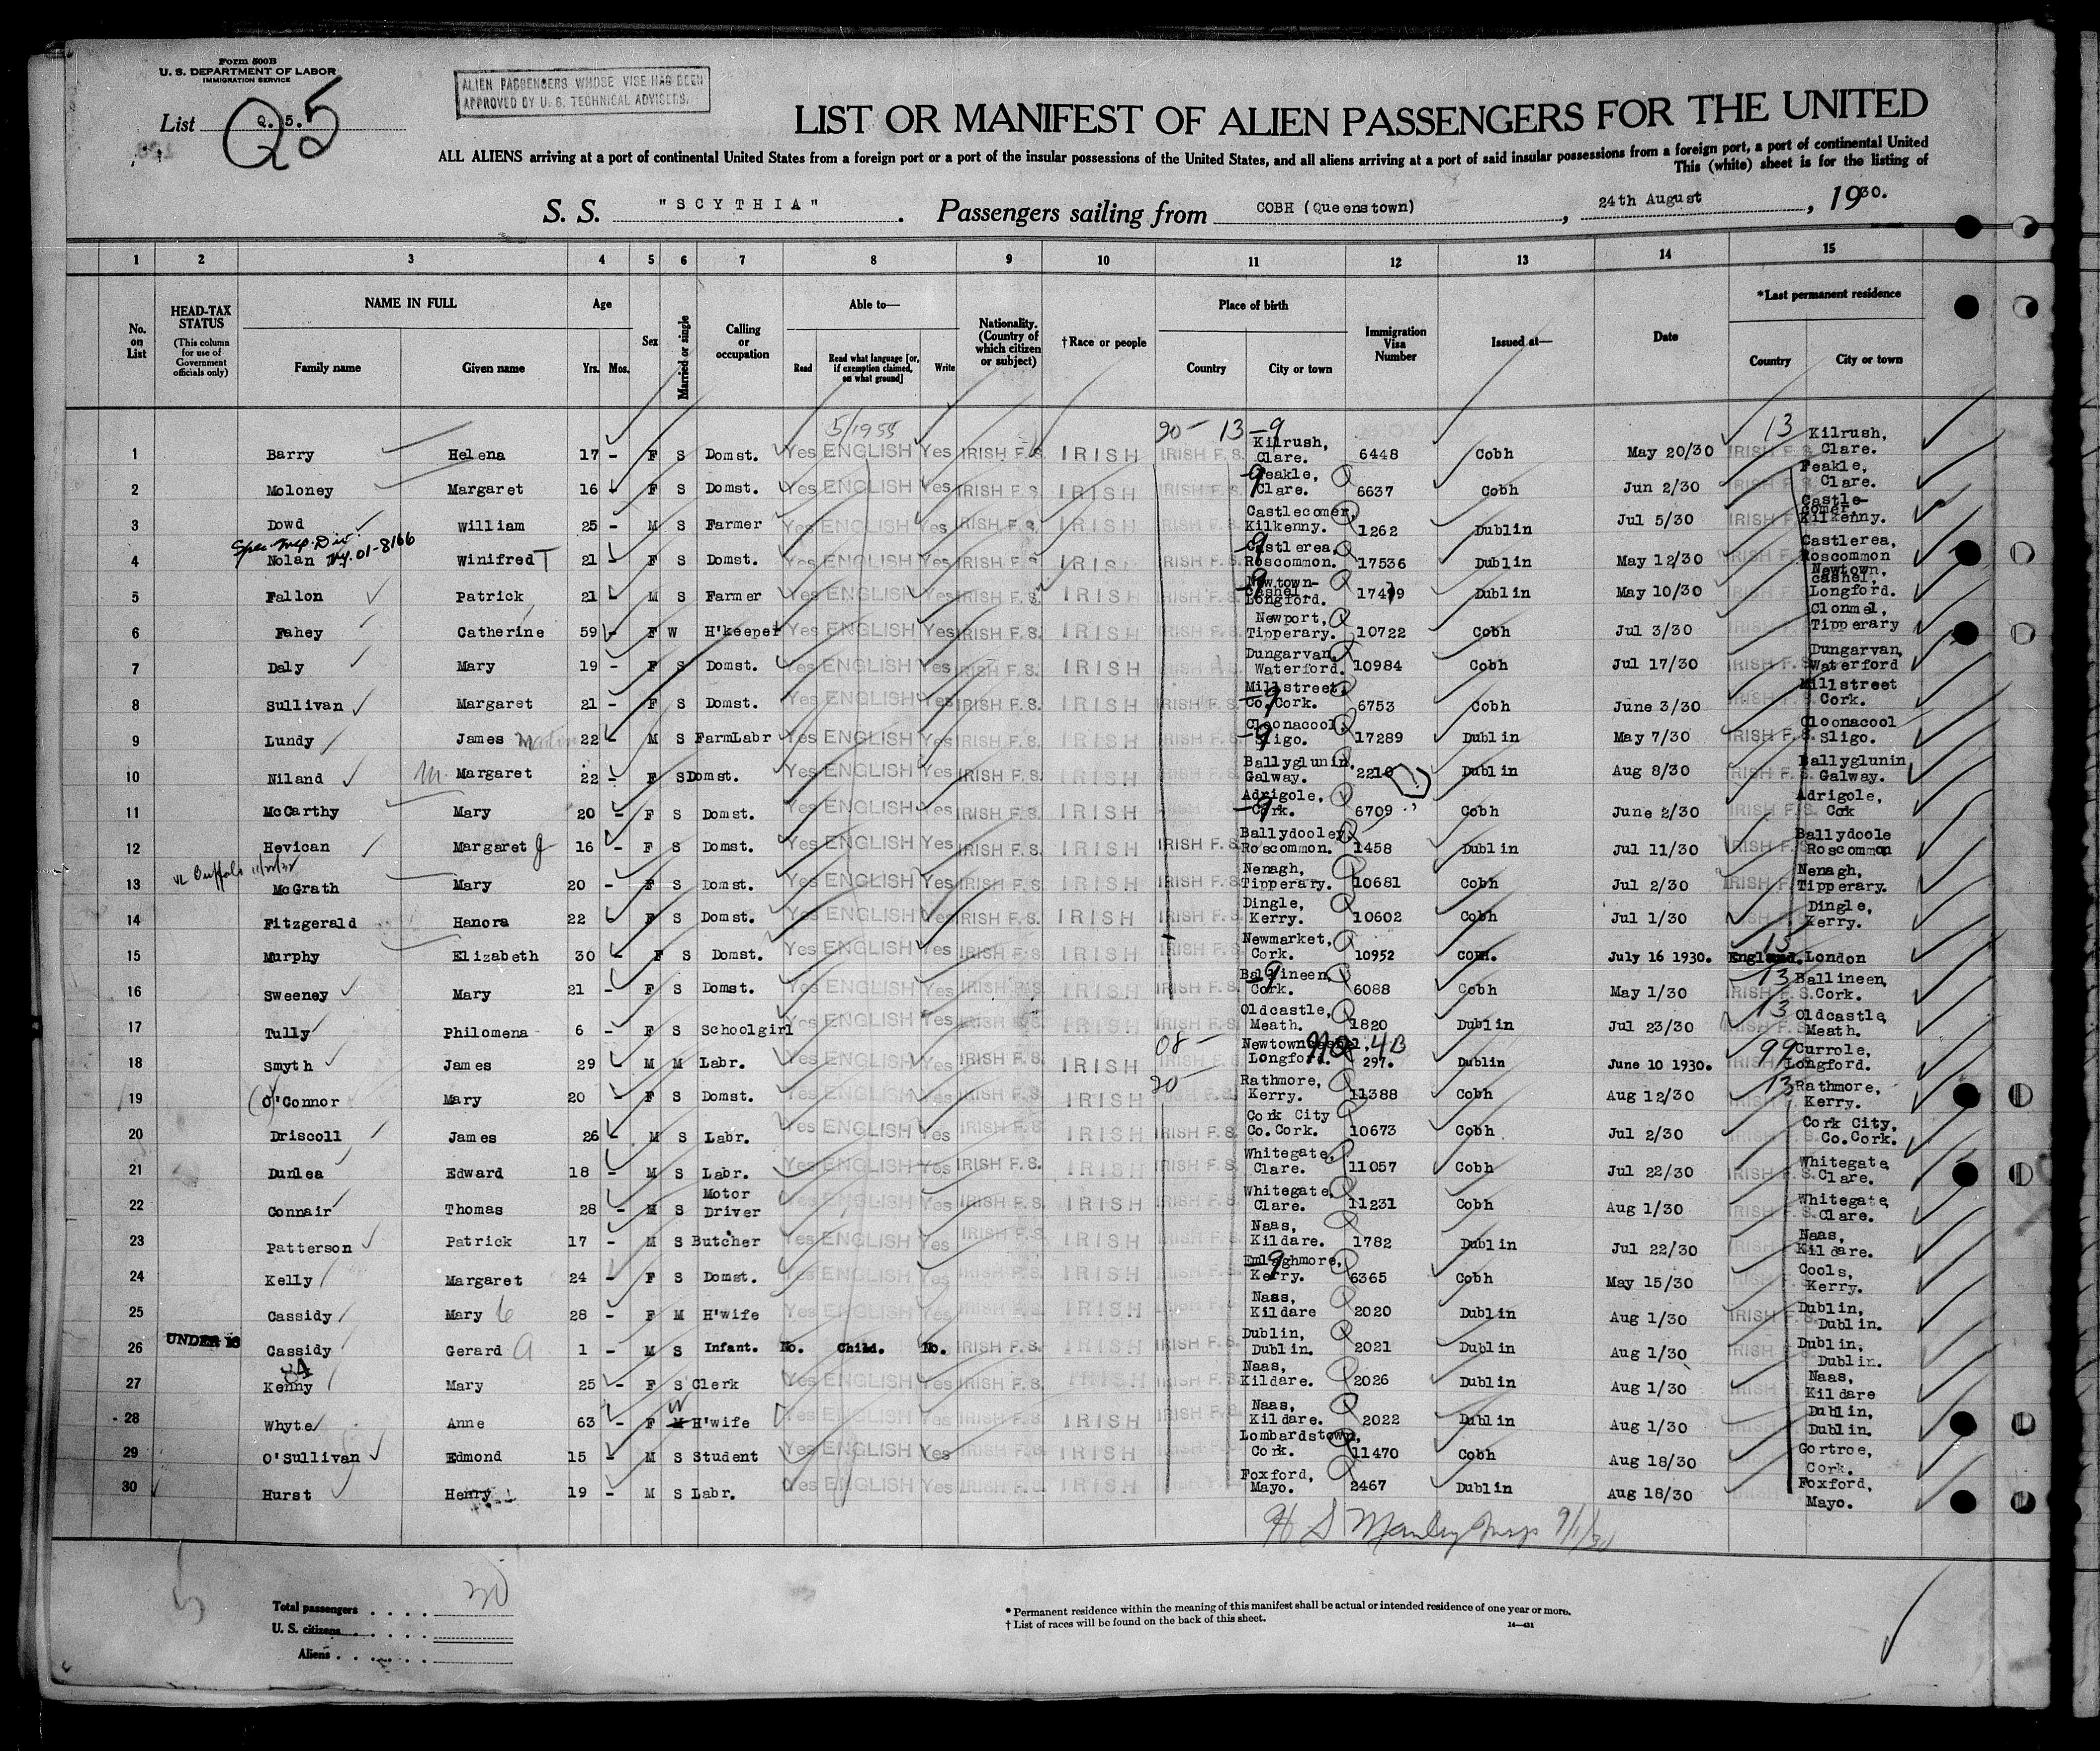 Form 500B
U. S. DEPARTMENT OF LABOR
IMMIGRATION SERVICE
ALIEN PASSENGERS WHOSE VISE HAS BEEN
APPROVED BY U. S. TECHNICAL ADVISERS.
List Q. 5.
Q5
LIST OR MANIFEST OF ALIEN PASSENGERS FOR THE UNITED
ALL ALIENS arriving at a port of continental United States from a foreign port or a port of the insular possessions of the United States, and all aliens arriving at a port of said insular possessions from a foreign port, a port of continental United
This (white) sheet is for the listing of
S. S. "SCYTHIA". Passengers sailing from COBH (Queenstown), 24th August, 1930.
1 2 3 4 5 6 7 8 9 10 11 12 13 14 15
No. on List HEAD-TAX STATUS (This column for use of Government officials only) NAME IN FULL Family name Given name Age Yrs. Mos. Sex Married or single Calling or occupation Able to— Read Read what language [or, if exemption claimed, on what ground] Write Nationality. (Country of which citizen or subject) †Race or people Place of birth Country City or town Immigration Visa Number Issued at— Date *Last permanent residence Country City or town
5/1955 90- 13-9 13
1 Barry Helena 17 - F S Domst. Yes ENGLISH Yes IRISH F.S. IRISH IRISH F.S. Kilrush, Clare. 6448 Cobh May 20/30 IRISH F.S. Kilrush, Clare.
2 Moloney Margaret 16 - F S Domst. Yes ENGLISH Yes IRISH F.S. IRISH IRISH F.S. Feakle, Clare. 6637 Cobh Jun 2/30 IRISH F.S. Feakle, Clare.
3 Dowd William 25 - M S Farmer Yes ENGLISH Yes IRISH F.S. IRISH IRISH F.S. Castlecomer, Kilkenny. 1262 Dublin Jul 5/30 IRISH F.S. Castle-comer, Kilkenny.
4 Nolan Winifred T 21 - F S Domst. Yes ENGLISH Yes IRISH F.S. IRISH IRISH F.S. Castlerea, Roscommon. 17536 Dublin May 12/30 IRISH F.S. Castlerea, Roscommon
5 Fallon Patrick 21 - M S Farmer Yes ENGLISH Yes IRISH F.S. IRISH IRISH F.S. Newtown-Cashel Longford. Dublin May 10/30 IRISH F.S. Newtown, cashel, Longford.
6 Fahey Catherine 59 - F W H'keeper Yes ENGLISH Yes IRISH F.S. IRISH IRISH F.S. Newport, Tipperary. 10722 Cobh Jul 3/30 IRISH F.S. Clonmel, Tipperary
7 Daly Mary 19 - F S Domst. Yes ENGLISH Yes IRISH F.S. IRISH IRISH F.S. Dungarvan, Waterford. 10984 Cobh Jul 17/30 IRISH F.S. Dungarvan, Waterford
8 Sullivan Margaret 21 - F S Domst. Yes ENGLISH Yes IRISH F.S. IRISH IRISH F.S. Millstreet, Co. Cork. 6753 Cobh June 3/30 IRISH F.S. Millstreet Cork.
9 Lundy James 22 - M S FarmLabr Yes ENGLISH Yes IRISH F.S. IRISH IRISH F.S. Cloonacool, Sligo. 17289 Dublin May 7/30 IRISH F.S. Cloonacool Sligo.
10 Niland M. Margaret 22 - F S Domst. Yes ENGLISH Yes IRISH F.S. IRISH IRISH F.S. Ballyglunin, Galway. 2210 Dublin Aug 8/30 IRISH F.S. Ballyglunin Galway.
11 McCarthy Mary 20 - F S Domst. Yes ENGLISH Yes IRISH F.S. IRISH IRISH F.S. Adrigole, Cork. 6709 Cobh June 2/30 IRISH F.S. Adrigole, Cok
12 Hevican Margaret 16 - F S Domst. Yes ENGLISH Yes IRISH F.S. IRISH IRISH F.S. Ballydooley, Roscommon. 1458 Dublin Jul 11/30 IRISH F.S. Ballydoole Roscommon
13 McGrath Mary 20 - F S Domst. Yes ENGLISH Yes IRISH F.S. IRISH IRISH F.S. Nenagh, Tipperary. 10681 Cobh Jul 2/30 IRISH F.S. Nenagh, Tipperary.
14 Fitzgerald Hanora 22 - F S Domst. Yes ENGLISH Yes IRISH F.S. IRISH IRISH F.S. Dingle, Kerry. 10602 Cobh Jul 1/30 IRISH F.S. Dingle, Kerry.
15 Murphy Elizabeth 30 - F S Domst. Yes ENGLISH Yes IRISH F.S. IRISH IRISH F.S. Newmarket, Cork. 10952 COBH. July 16 1930. England. London
16 Sweeney Mary 21 - F S Domst. Yes ENGLISH Yes IRISH F.S. IRISH IRISH F.S. Ballineen, Cork. 6088 Cobh May 1/30 IRISH F.S. Ballineen, Cork.
17 Tully Philomena 6 - F S Schoolgirl Yes ENGLISH Yes IRISH F.S. IRISH IRISH F.S. Oldcastle, Meath. 1820 Dublin Jul 23/30 IRISH F.S. Oldcastle, Meath.
18 Smyth James 29 - M M Labr. Yes ENGLISH Yes IRISH F.S. IRISH IRISH F.S. Longford. 297. Dublin June 10 1930. IRISH Currole, Longford.
19 O'Connor Mary 20 - F S Domst. Yes ENGLISH Yes IRISH F.S. IRISH IRISH F.S. Rathmore, Kerry. 11388 Cobh Aug 12/30 IRISH F.S. Rathmore, Kerry.
20 Driscoll James 26 - M S Labr. Yes ENGLISH Yes IRISH F.S. IRISH IRISH F.S. Cork City Co. Cork. 10673 Cobh Jul 2/30 IRISH F.S. Cork City, Co. Cork.
21 Dunlea Edward 18 - M S Labr. Yes ENGLISH Yes IRISH F.S. IRISH IRISH F.S. Whitegate, Clare. 11057 Cobh Jul 22/30 IRISH F.S. Whitegate, Clare.
22 Connair Thomas 28 - M S Motor Driver Yes ENGLISH Yes IRISH F.S. IRISH IRISH F.S. Whitegate, Clare. 11231 Cobh Aug 1/30 IRISH F.S. Whitegate, Clare.
23 Patterson Patrick 17 - M S Butcher Yes ENGLISH Yes IRISH F.S. IRISH IRISH F.S. Naas, Kildare. 1782 Dublin Jul 22/30 IRISH F.S. Naas, Kildare.
24 Kelly Margaret 24 - F S Domst. Yes ENGLISH Yes IRISH F.S. IRISH IRISH F.S. Emlaghmore, Kerry. 6365 Cobh May 15/30 IRISH F.S. Cools, Kerry.
25 Cassidy Mary C 28 - F M H'wife Yes ENGLISH Yes IRISH F.S. IRISH IRISH F.S. Naas, Kildare 2020 Dublin Aug 1/30 IRISH F.S. Dublin, Dublin.
26 UNDER 16 Cassidy Gerard A 1 - M S Infant. No. Child. No. IRISH F.S. IRISH IRISH F.S. Dublin, Dublin. 2021 Dublin Aug 1/30 IRISH F.S. Dublin, Dublin.
27 Kenny Mary 25 - F S Clerk Yes ENGLISH Yes IRISH F.S. IRISH IRISH F.S. Naas, Kildare. 2026 Dublin Aug 1/30 IRISH F.S. Naas, Kildare
28 Whyte Anne 63 - F W H'wife Yes ENGLISH Yes IRISH F.S. IRISH IRISH F.S. Naas, Kildare. 2022 Dublin Aug 1/30 IRISH F.S. Dublin, Dublin.
29 O'Sullivan Edmond 15 - M S Student Yes ENGLISH Yes IRISH F.S. IRISH IRISH F.S. Lombardstown, Cork. 11470 Cobh Aug 18/30 IRISH F.S. Gortroe, Cork.
30 Hurst Henry 19 - M S Labr. Yes ENGLISH Yes IRISH F.S. IRISH IRISH F.S. Foxford, Mayo. 2467 Dublin Aug 18/30 IRISH F.S. Foxford, Mayo.
Total passengers . . . . 30
U. S. citizens
Aliens . . . . .
* Permanent residence within the meaning of this manifest shall be actual or intended residence of one year or more.
† List of races will be found on the back of this sheet.